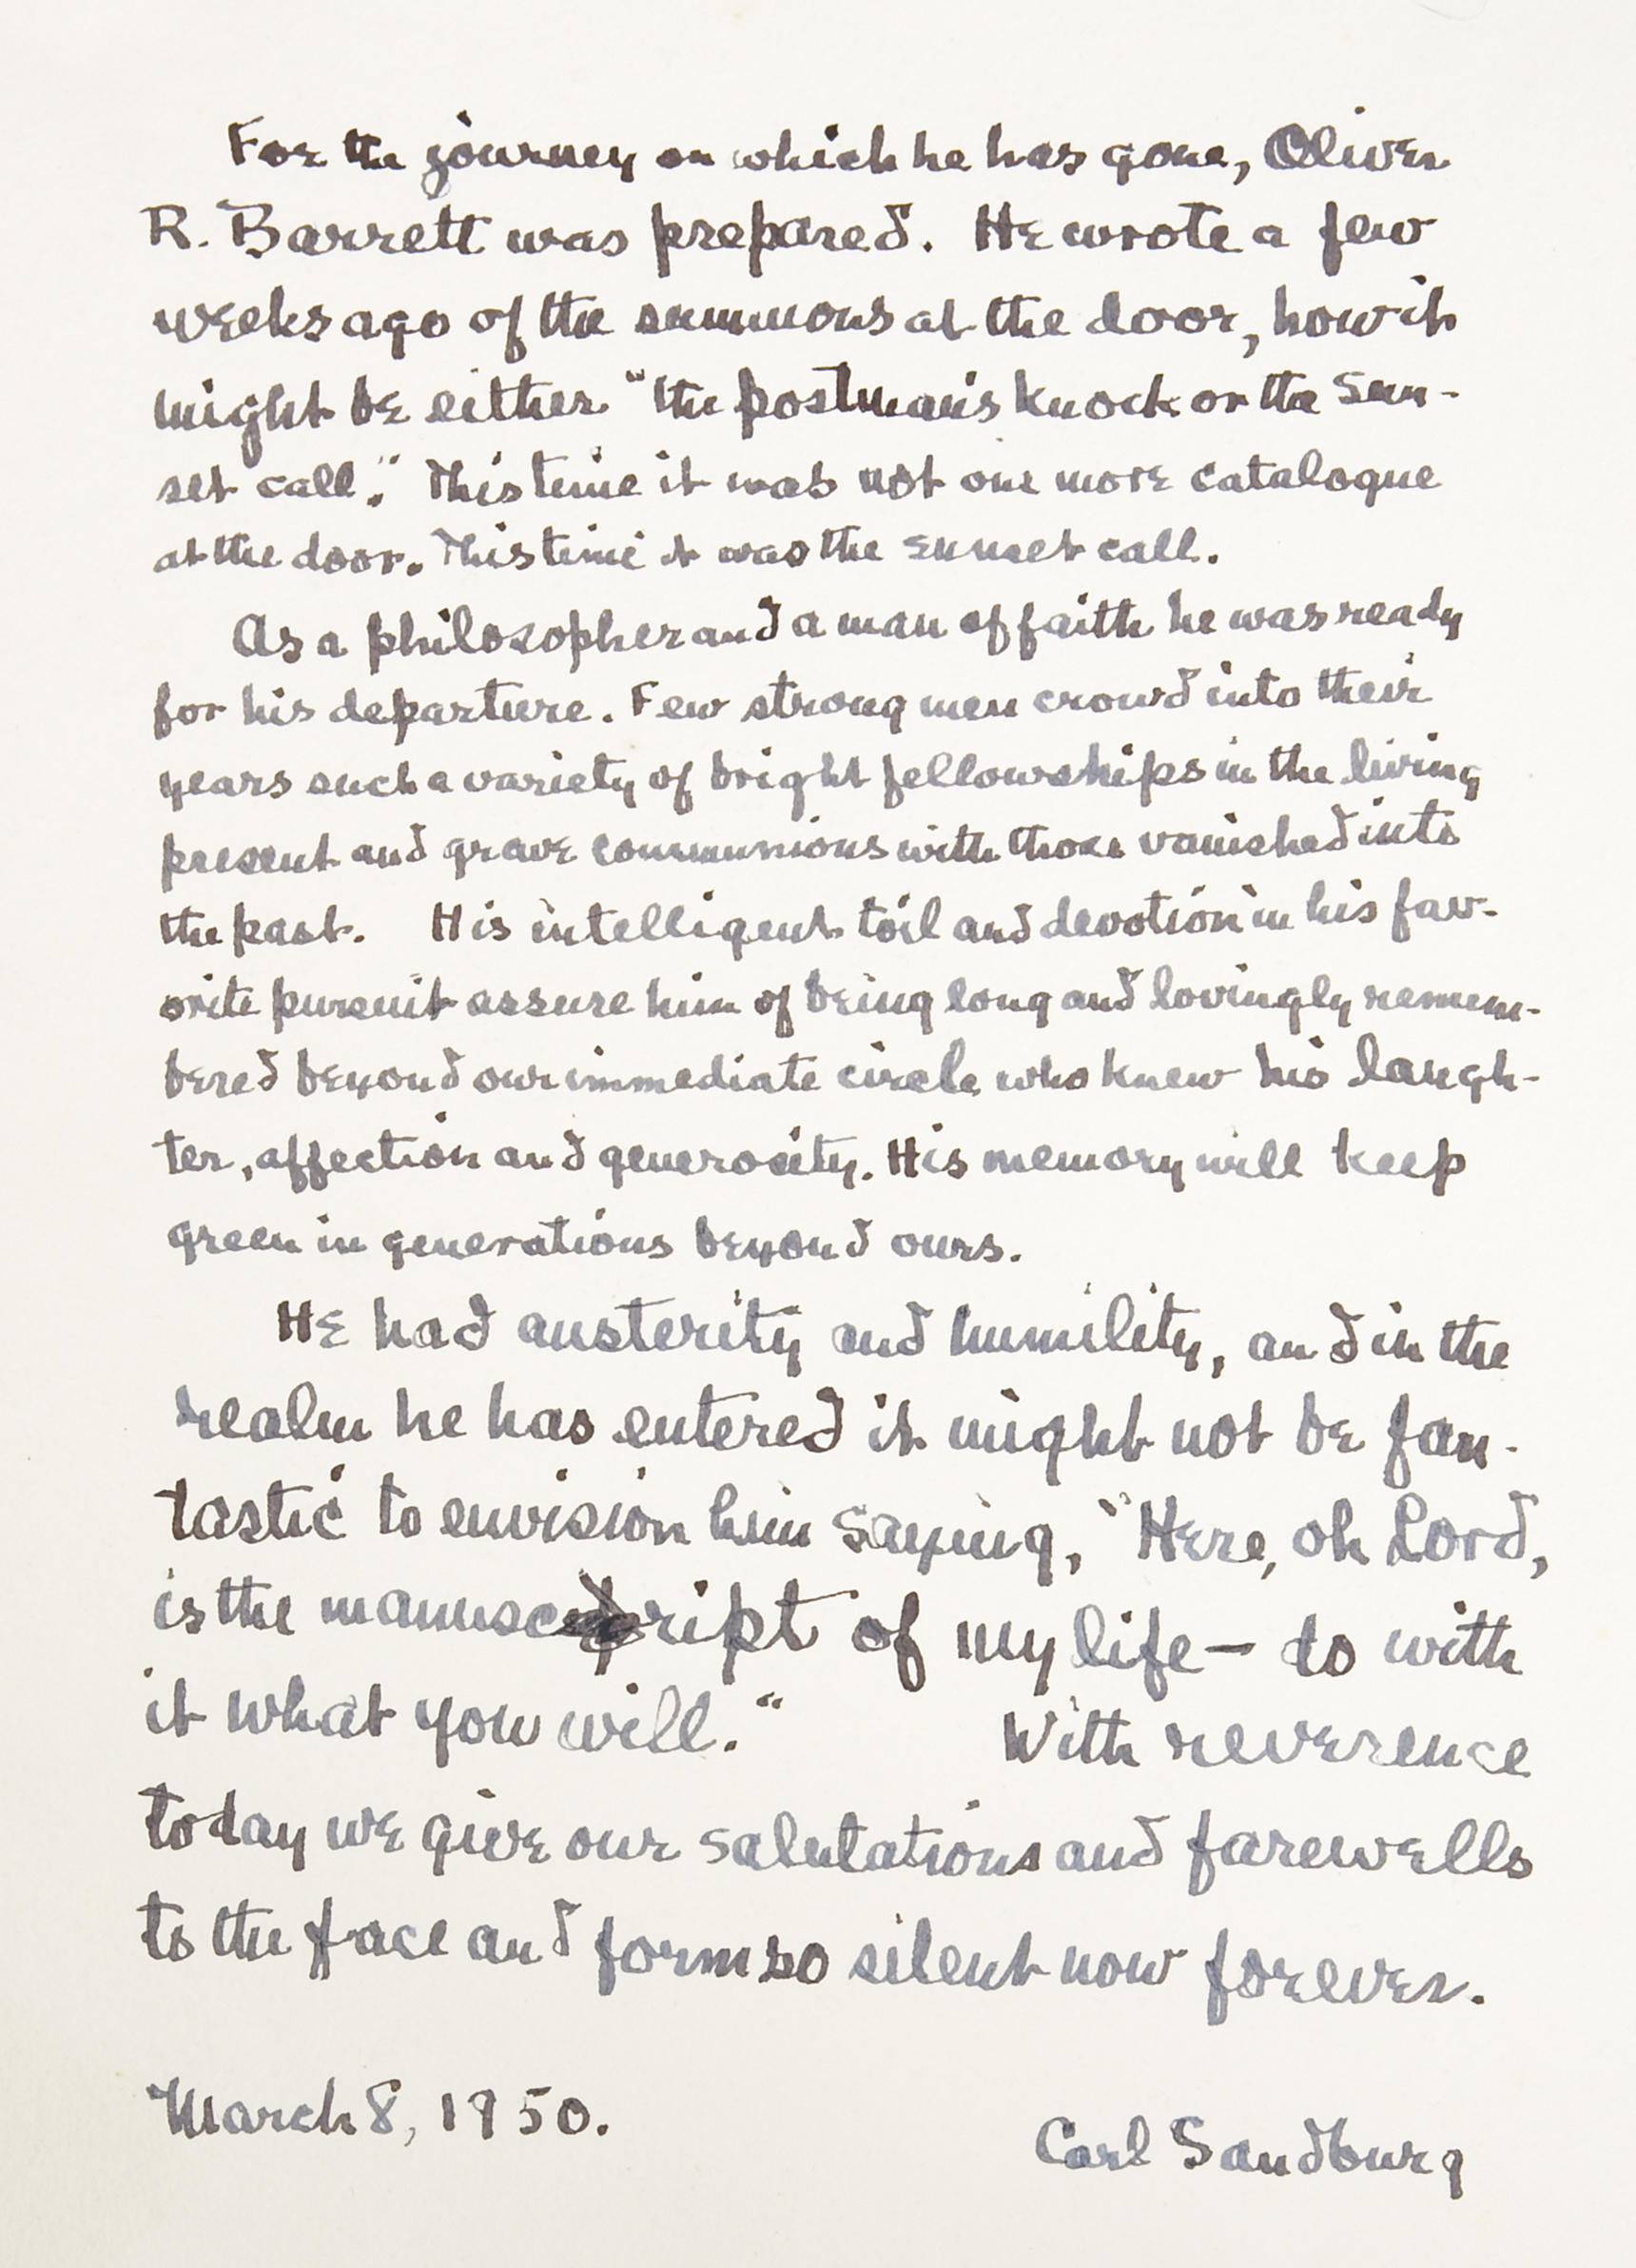 For the journey on which he has gone, Oliver
R. Barrett was prepared. He wrote a few
weeks ago of the summons at the door, how it
might be either "the postman's knock or the sun-
set call." This time it was not one more catalogue
at the door. This time it was the sunset call.
As a philosopher and a man of faith he was ready
for his departure. Few strong men crowd into their
years such a variety of bright fellowships in the living
present and grave communions with those vanished into
the past. His intelligent toil and devotion in his fav-
orite pursuit assure him of being long and lovingly remem-
bered beyond our immediate circle who knew his laugh-
ter, affection and generosity. His memory will keep
green in generations beyond ours.
He had austerity and humility, and in the
realm he has entered it might not be fan-
tastic to envision him saying, "Here, oh Lord,
is the manuscript of my life — do with
it what you will." With reverence
today we give our salutations and farewells
to the face and form so silent now forever.
March 8, 1950.
Carl Sandburg